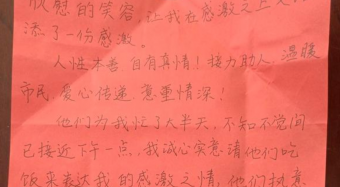 欣慰的笑容，让我在感激之上又
添了一份感激。
人性本善 自有真情！接力助人，温暖
市民，爱心传递 意重情深！
他们为我忙了大半天，不知不觉间
已接近下午一点，我诚心实意请他们吃
饭来表达我的感激之情，他们执意